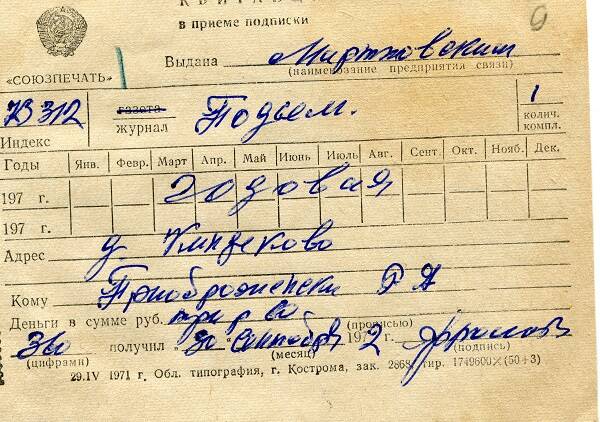 в приеме подписки
Выдана
(наименование предприятия связи)
«СОЮЗПЕЧАТЬ»
73312 газета Подъем. 1
Индекс журнал колич. компл.
Годы Янв. Февр. Март Апр. Май Июнь Июль Авг. Сент. Окт. Нояб. Дек.
197 г. годовая
197 г.
Адрес д.
Кому Р А
Деньги в сумме руб. три р
(прописью)
получил "30" Сентября 197 2
(цифрами) (месяц) (подпись)
29.IV 1971 г. Обл. типография, г. Кострома, зак. 2868, тир. 1749600×(50+3)